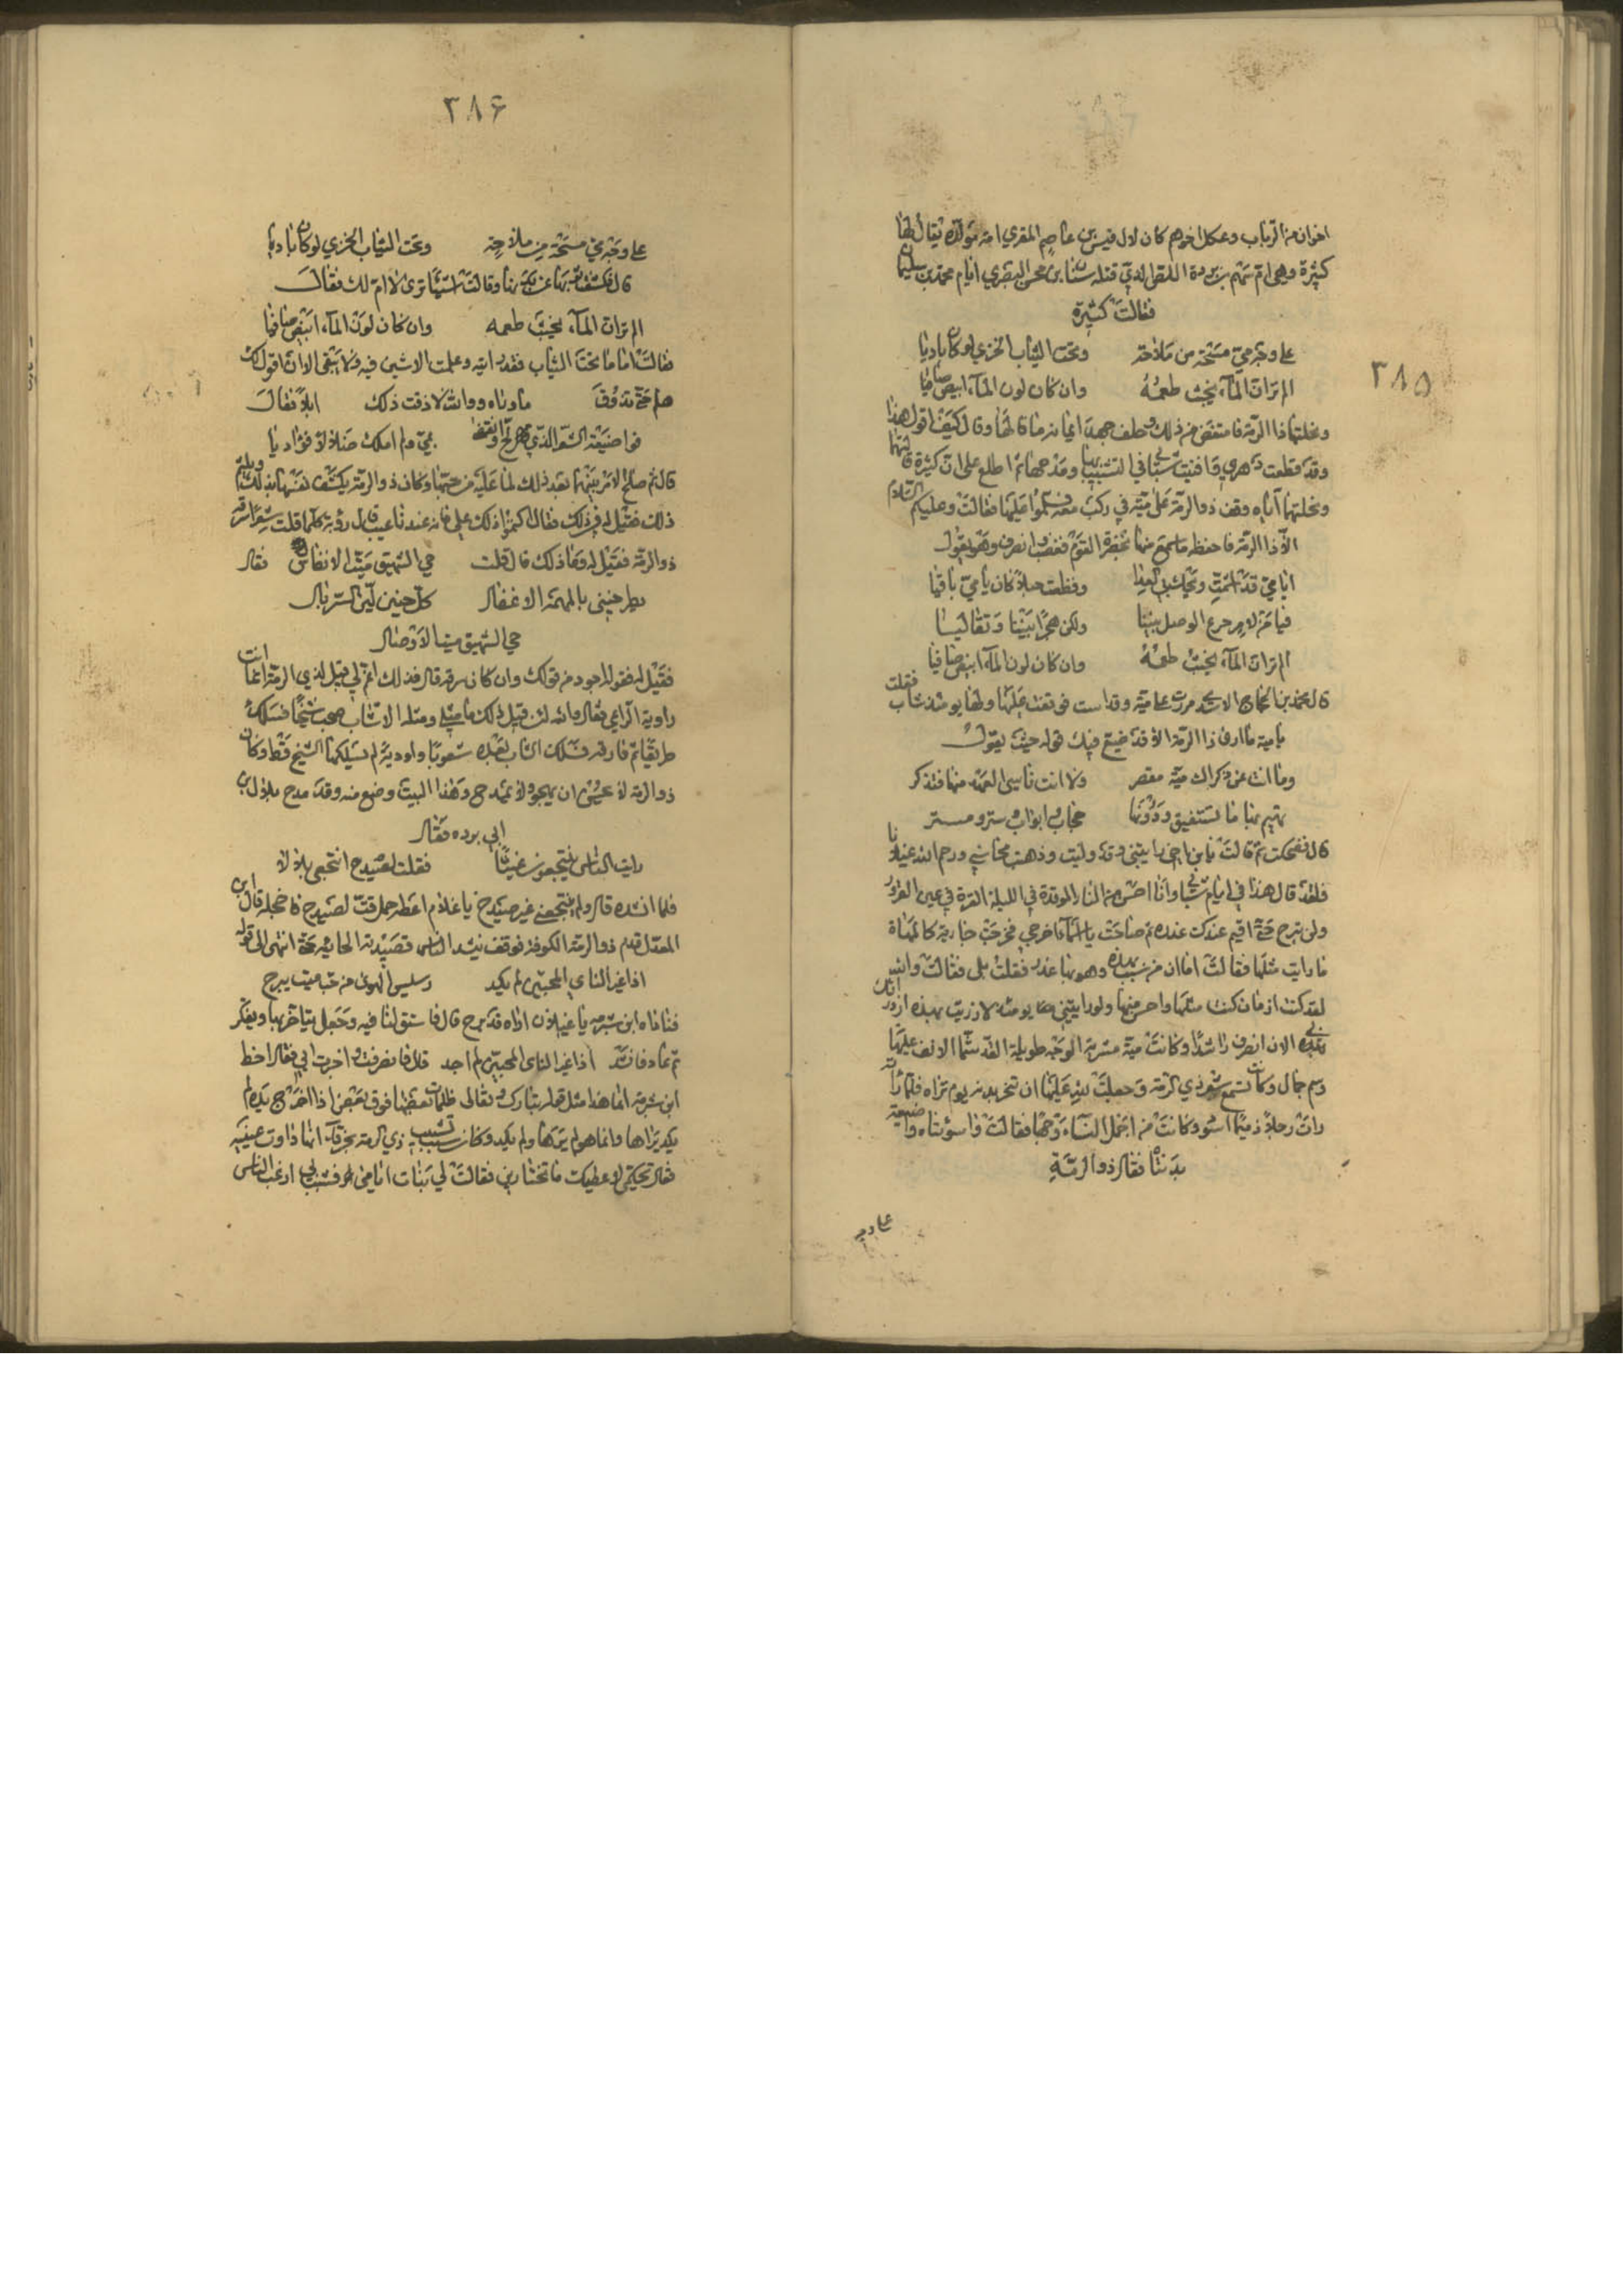 ٣٨٥
اخوان من الرباب وعكل اخوهم كان لال قيس بن عاصم المقري امه مولدة يقال لها
كثيرة وهي ام سهم بن بردة اللص الذي قتله سنان بن محرز البصري ايام محمد بن سليمان
فقالت كثيرة
على وجه مي مسحة من ملاحة وتحت الثياب الخزي لو كان باديا
الم تر ان الماء يخبث طعمه وان كان لون الماء ابيض صافيا
ونحلتها ذا الرمة فامتعض من ذلك وحلف جهد ايمانه ما قالها وقال كيف اقول هذا
وقد قطعت دهري وافنيت شبابي في التشبيب بها ومدحها ثم اطلع على ان كثيرة قالتها
ونحلتها اياه وقف ذو الرمة على مية في ركب معه فسلموا عليها فقالت وعليكم السلام
الا ذا الرمة فاحفظه ما سمع منها بحضرة القوم فغضب وانصرف وهو يقول
ايا مي قد اشمت بي ويحك العدا وقطعت حبلا كان يا مي باقيا
فيا مي لا مرجوع للوصل بيننا ولكن هجرا بيننا وتقاليا
الم تر ان الماء يخبث طعمه وان كان لون الماء ابيض صافيا
قال محمد بن الحجاج الاسدي مررت على مية وقد اسنت فوقفت عليها وانا يومئذ شاب فقلت
يا مية ما ارى ذا الرمة الا قد ضيع فيك قوله حيث يقول
وما انت عن ذكراك مية مقصر ولا انت ناسي العهد منها فتذكر
تهيم بها ما تستفيق ودونها حجاب وابواب وستر ومستر
قال فضحكت ثم قالت يا بن اخي رايتني وقد وليت وذهبت محاسني ورحم الله غيلانا
فلقد قال هذا في ايام شبابي وانا احسن من النار الموقدة في الليلة القرة في عين المقرور
ولن تبرح حتى اقيم عندك عذره ثم صاحت يا اسما اخرجي فخرجت جارية كالمهاة
ما رايت مثلها فقالت اما ان من شبب بهذه وهويها عذر فقلت بلى فقالت والله
لقد كنت ازمان كنت مثلها واحسن منها ولو رايتني يومئذ لازريت بهذه ازدراءك
بي الان انصرف راشدا وكانت مية مسنونة الوجه طويلة الخد شما الانف عليها
وسم جمال وكانت تسمع شعر ذي الرمة وجعلت لله عليها ان تنحر بدنة يوم تراه فلما راته
رات رجلا ذميما اسود وكانت من اجمل النساء وجها فقالت واسوءتاه واضيعة
بدنتاه فقال ذو الرمة
على وجه
٣٨۶
على وجه مي مسحة من ملاحة وتحت الثياب الخزي لو كان باديا
قال فكشفت ثوبها عن بدنها وقالت اشينا ترى لا ام لك فقال
الم تر ان الماء يخبث طعمه وان كان لون الماء ابيض صافيا
فقالت اما ما تحت الثياب فقد رايته وعلمت الا شين فيه ولا يبقى الا ان اقول لك
هلم حتى تذوق ما وراه ووالله لا ذقت ذلك ابدا فقال
فواضيعة الشعر الذي لج وانقضى بمي ولم املك ضلال فؤاديا
قال ثم صلح الامر بينهما بعد ذلك لما عليه من حبها وكان ذو الرمة
ذو الرمة فقيل له وما ذاك قال قلت حي الشهيق ميت الانفاس فقال
يطرحنني بالمهمه الاغفال كل جنين لثق السربال
حي الشهيق ميت الاوصال
فقيل له فقوله اجود من قولك وان كان سرقه قال فذلك اغم لي قيل لذي الرمة انما انت
راوية الراعي فقال والله لئن قيل ذلك ما مثلي ومثله الا شاب صحب شيخا فسلك به
طريقا ثم فارقه فسلك الشاب بعده شعوبا واودية لم يسلكها الشيخ قط وكان
ذو الرمة لا يحسن ان يهجو ولا يمدح وهذا البيت وضع منه وقد مدح بلال بن
ابي برده فقال
رايت الناس ينتجعون غيثا فقلت لصيدح انتجعي بلالا
فلما انشده قال ولم ينتجعني غير صيدح يا غلام اعطه حمل قت لصيدح فاخجله قال ابن
المعذل قدم ذو الرمة الكوفة فوقف ينشد الناس قصيدته الحائيه حتى انتهى الى قوله
اذا غير الناي المحبين لم يكد رسيس الهوى من حب مية يبرح
فناداه ابن شبرمه يا غيلان اراه قد برح قال فاشنق لنا فيه وجعل يتاخر بها ويفكر
ثم عاد فانشد اذا غير الناي المحبين لم اجد قال فانصرفت واخبرت ابي فقال اخطا
ابن شبرمة انما هذا مثل قوله تبارك وتعالى ظلمات بعضها فوق بعض اذا اخرج يده لم
يكد يراها وانما هو لم يرها ولم يكد وكان سبب تشبيب ذي الرمة بخرقاء انها داوت عينيه
فقال تحكمي لاعطيك ما تختارين فقالت لي بنات ايامى فشبب بي ارغب الناس